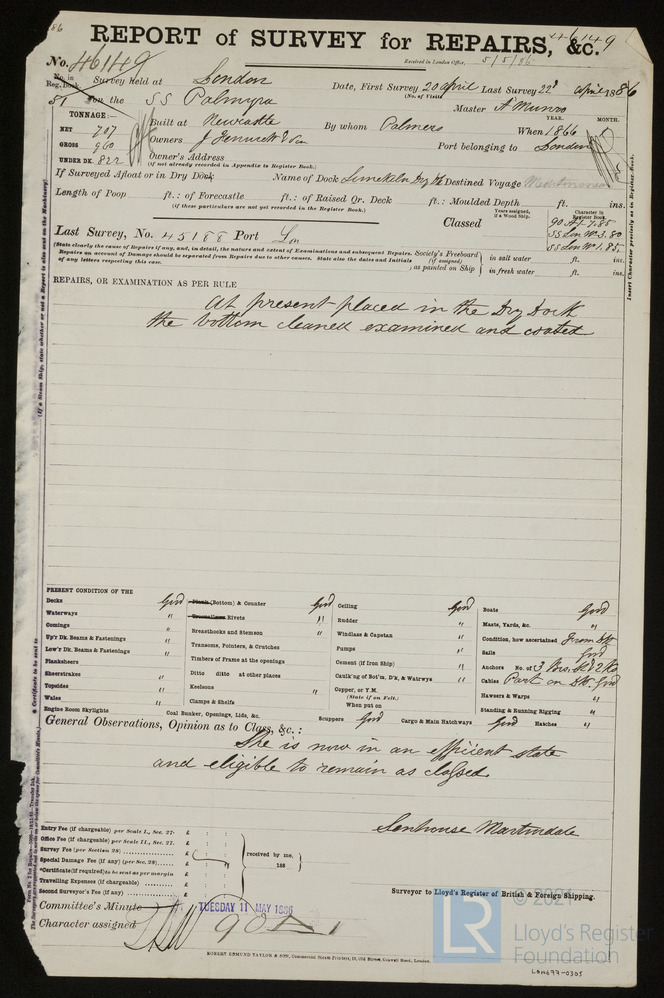 86
REPORT of SURVEY for REPAIRS, &c.
46149
No. 46149
Received in London Office, 5/5/86
No. in Reg. Book
51
Survey held at London
Date, First Survey 20 April Last Survey 22d April 1886
(No. of Visits
on the SS Palmyra
Master A Munro
TONNAGE:—
NET 707
GROSS 960
UNDER DK. 822
Built at Newcastle By whom Palmers When 1866
YEAR. MONTH.
Owners J Fenwick & Son Port belonging to London
Owner's Address
(if not already recorded in Appendix to Register Book.)
If Surveyed Afloat or in Dry Dock Name of Dock Limekiln Dry Dk Destined Voyage
Length of Poop ft.: of Forecastle ft.: of Raised Qr. Deck ft.: Moulded Depth ft. ins.
(if these particulars are not yet recorded in the Register Book.)
Last Survey, No. 45188 Port Lon
Classed
Years assigned, if a Wood Ship.
Character in Register Book.
90 A1 7.85
SS Lon No 3. 80
SS Lon No 1. 85
(State clearly the cause of Repairs if any, and, in detail, the nature and extent of Examinations and subsequent Repairs.
Repairs on account of Damage should be separated from Repairs due to other causes. State also the dates and Initials
of any letters respecting this case.
Society's Freeboard (if assigned) as painted on Ship
in salt water ft. ins.
in fresh water ft. ins.
Insert Character precisely as in Register Book.
REPAIRS, OR EXAMINATION AS PER RULE
At present placed in the Dry Dock
the bottom cleaned examined and coated
(If a Steam Ship, state whether or not a Report is also sent on the Machinery)
PRESENT CONDITION OF THE
Decks Good
Waterways "
Comings "
Up'r Dk. Beams & Fastenings "
Low'r Dk. Beams & Fastenings "
Planksheers
Sheerstrakes "
Topsides "
Wales "
Engine Room Skylights "
Plank (Bottom) & Counter Good
Treenails or Rivets "
Breasthooks and Stemson
Transoms, Pointers, & Crutches
Timbers of Frame at the openings
Ditto ditto at other places
Keelsons "
Clamps & Shelfs
Coal Bunker, Openings, Lids, &c.
Ceiling Good
Rudder "
Windlass & Capstan "
Pumps "
Cement (if Iron Ship) "
Caulk'ng of Bot'm, D'k, & Watrwys "
Copper, or Y.M.
(State if on Felt.)
When put on
Scuppers Good Cargo & Main Hatchways Good Hatches "
Boats Good
Masts, Yards, &c. "
Condition, how ascertained From Dk
Sails Good
Anchors No. of 3 Bow. 1 St & 2 Ke
Cables Part on Dk. Good
Hawsers & Warps "
Standing & Running Rigging "
General Observations, Opinion as to Class, &c.:
She is now in an efficient state
and eligible to remain as classed
Senhouse Martindale
Entry Fee (if chargeable) per Scale I., Sec. 27. £
Office Fee (if chargeable) per Scale II., Sec. 27. £
Survey Fee (per Section 28) £
Special Damage Fee (if any) (per Sec. 28) £
*Certificate (if required) to be sent as per margin £
Travelling Expenses (if chargeable) £
Second Surveyor's Fee (if any) £
received by me,
188
Surveyor to Lloyd's Register of British & Foreign Shipping.
Committee's Minute TUESDAY 11 MAY 1886
Character assigned 90 A 1
ROBERT EDMUND TAYLOR & SON, Commercial Steam Printers, 19, Old Street, Goswell Road, London.
© 2021
LR
Lloyd's Register
Foundation
LON677-0305